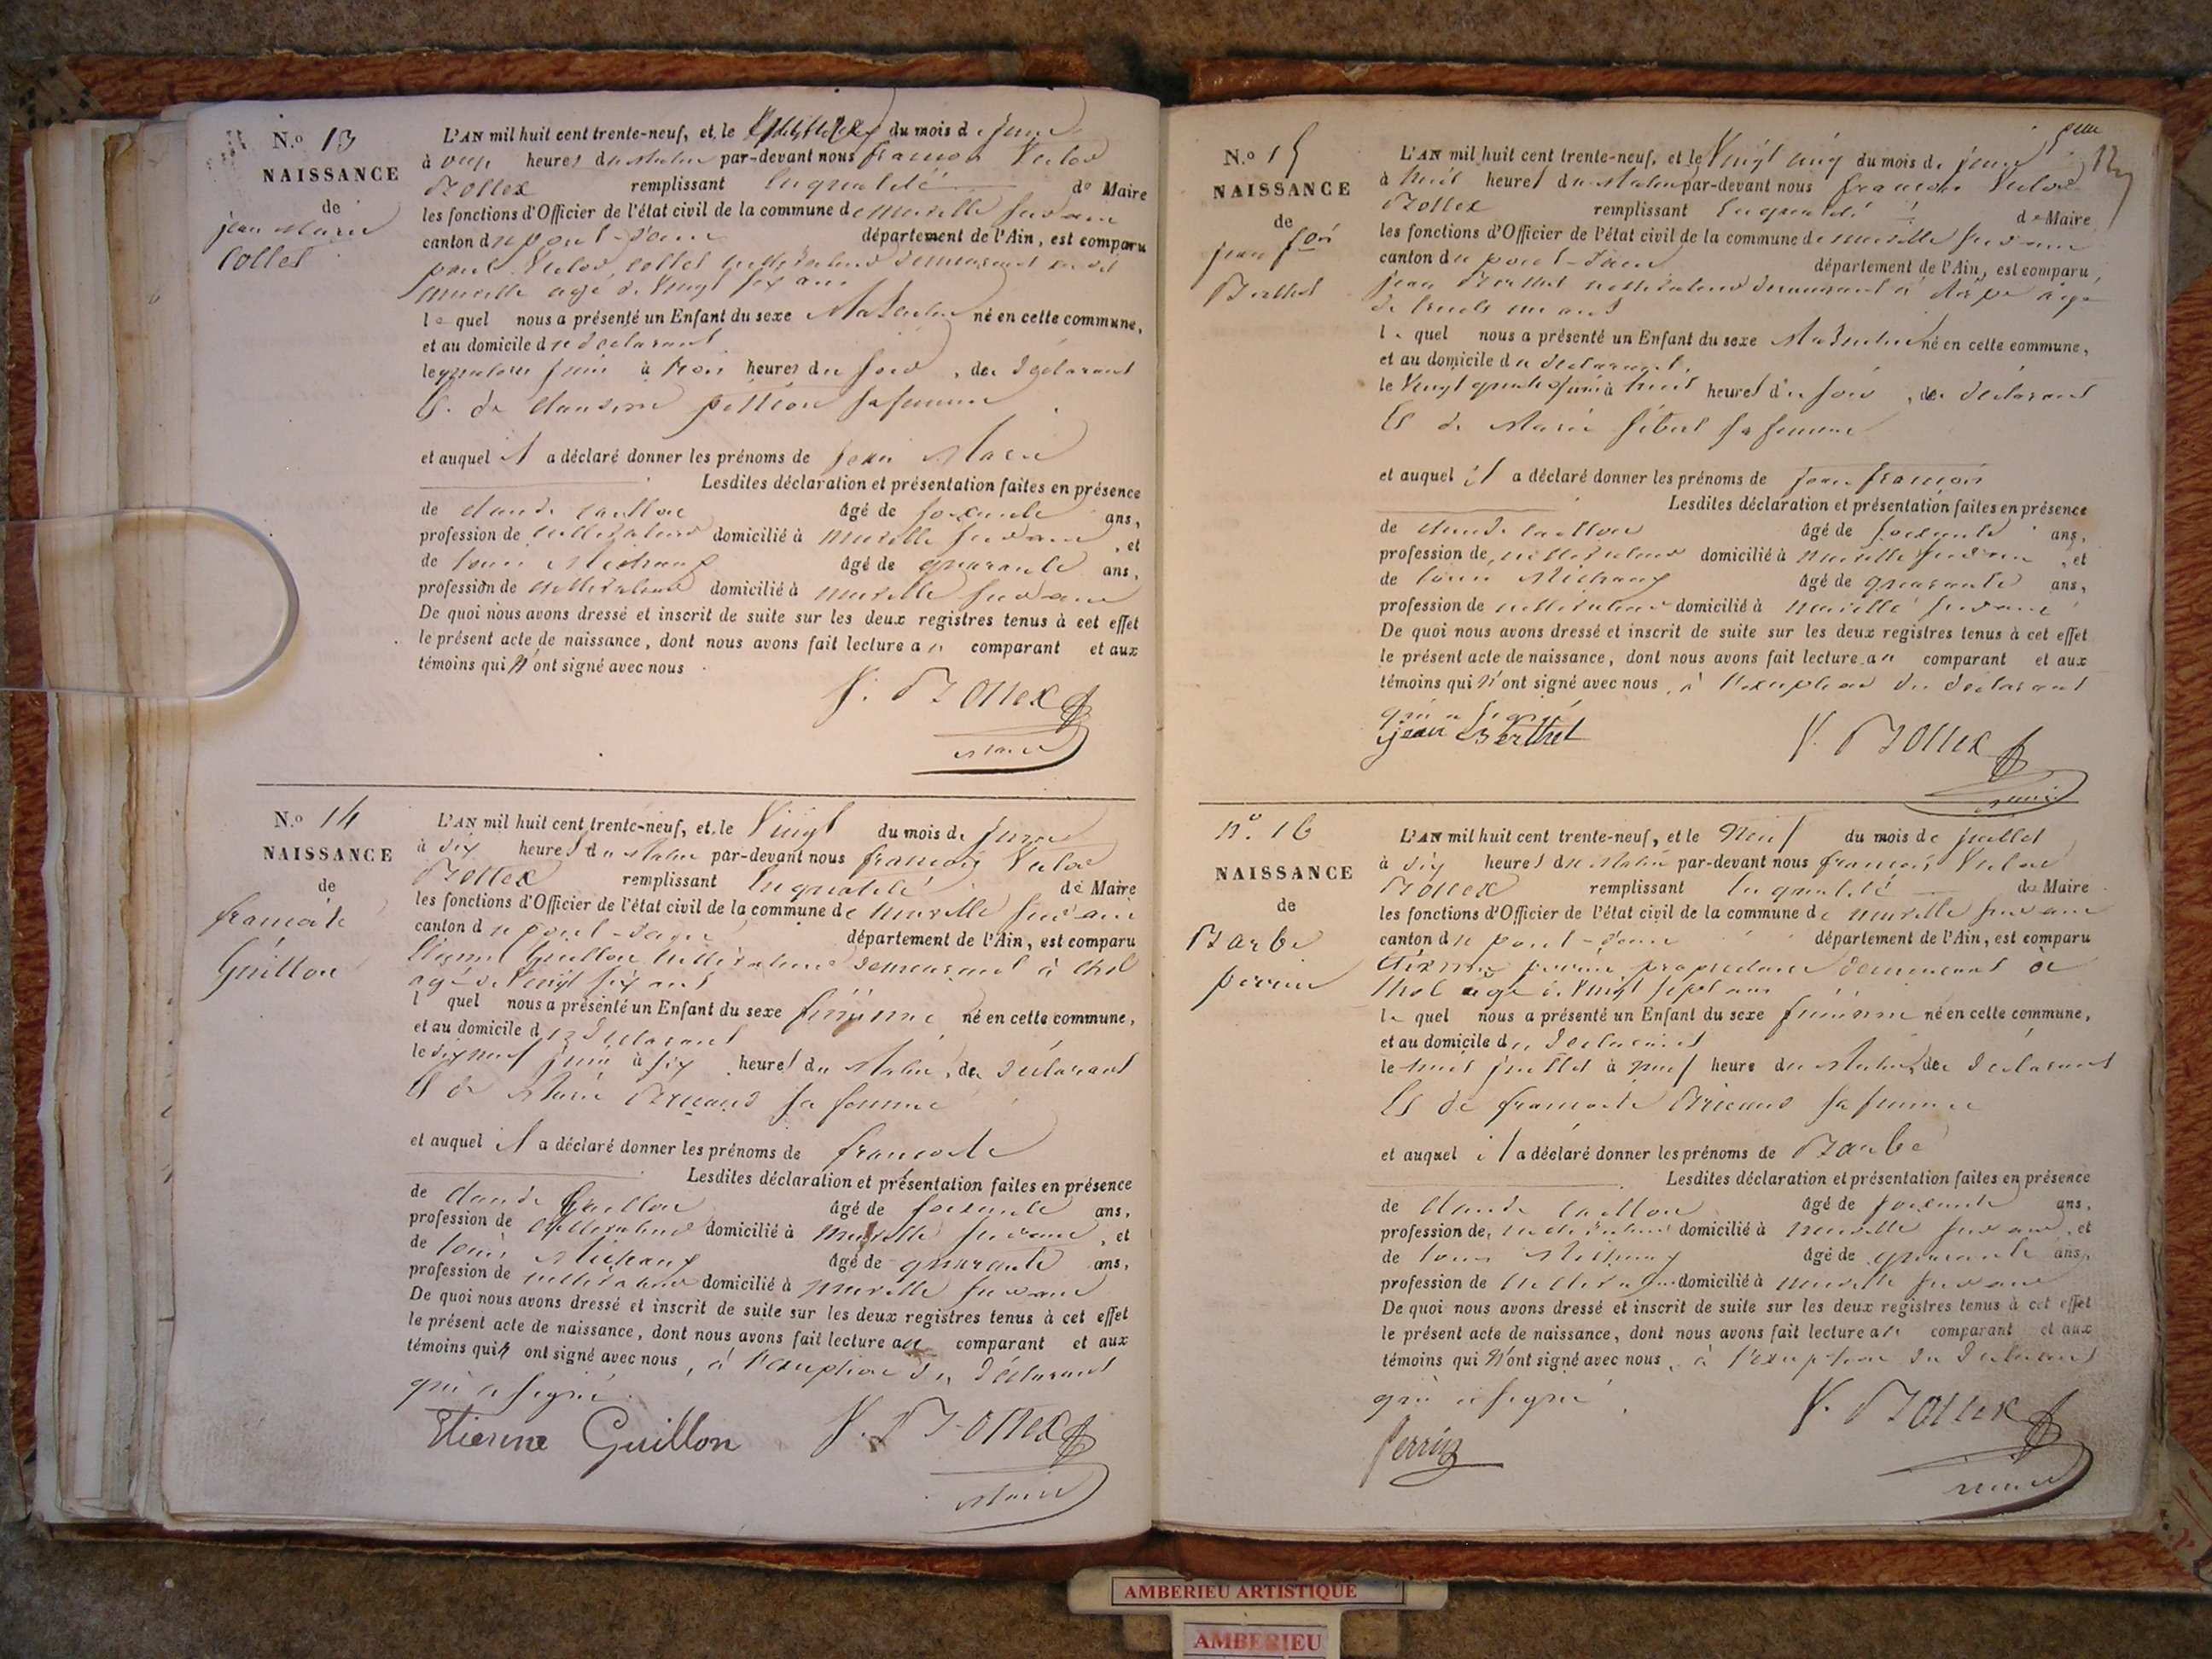 N.o 13
NAISSANCE
de
jean Marie
Collet
L'AN mil huit cent trente-neuf, et le du mois de juin
à onze heures du Matin par-devant nous françois Victor
Bollex remplissant En qualité de Maire
les fonctions d'Officier de l'état civil de la commune de neuville sur ain
canton du pont-d'ain département de l'Ain, est comparu
Victor Collet cultivateur demeurant au dit
neuville agé de Vingt six ans
le quel nous a présenté un Enfant du sexe Masculin né en cette commune,
et au domicile du déclarant
le quatorze juin à trois heures du soir, de déclarant
Et de claudine pittion sa femme
et auquel il a déclaré donner les prénoms de jean Marie
Lesdites déclaration et présentation faites en présence
de claude caillon âgé de soixante ans,
profession de cultivateur domicilié à neuville sur ain, et
de louis Michaux âgé de quarante ans,
profession de cultivateur domicilié à neuville sur ain
De quoi nous avons dressé et inscrit de suite sur les deux registres tenus à cet effet
le présent acte de naissance, dont nous avons fait lecture au comparant et aux
témoins qui N'ont signé avec nous
V. Bollex
Maire
N.o 14
NAISSANCE
de
francoise
Guillon
L'AN mil huit cent trente-neuf, et le Vingt du mois de juin
à dix heures du Matin par-devant nous françois Victor
Bollex remplissant En qualité de Maire
les fonctions d'Officier de l'état civil de la commune de neuville sur ain
canton du pont-dain département de l'Ain, est comparu
Etienne Guillon cultivateur demeurant à thol
agé de Vingt six ans
l quel nous a présenté un Enfant du sexe féminin né en cette commune,
et au domicile du déclarant
le dix neuf juin à six heures du Matin, de déclarant
Et de Marie sa femme
et auquel il a déclaré donner les prénoms de francoise
Lesdites déclaration et présentation faites en présence
de claude Caillon âgé de soixante ans,
profession de cultivateur domicilié à neuville sur ain, et
de louis Michaux âgé de quarante ans,
profession de cultivateur domicilié à neuville sur ain
De quoi nous avons dressé et inscrit de suite sur les deux registres tenus à cet effet
le présent acte de naissance, dont nous avons fait lecture au comparant et aux
témoins qui N ont signé avec nous, à l'exeption du déclarant
qui a signé
Etienne Guillon V. Bollex
Maire
N.o 15
NAISSANCE
de
jean fois
Berthet
L'AN mil huit cent trente-neuf, et le Vingt cinq du mois de juin
à huit heures du Matin par-devant nous françois Victor
Bollex remplissant En qualité de Maire
les fonctions d'Officier de l'état civil de la commune de neuville sur ain
canton du pont-dain département de l'Ain, est comparu
jean Berthet cultivateur demeurant à agé
de trente un ans
le quel nous a présenté un Enfant du sexe Masculin né en cette commune,
et au domicile du déclarant,
le Vingt quatre juin à huit heures du soir, de déclarant
Et de Marie sa femme
et auquel il a déclaré donner les prénoms de jean françois
Lesdites déclaration et présentation faites en présence
de claude caillon âgé de soixante ans,
profession de cultivateur domicilié à neuville sur ain, et
de louis Michaux âgé de quarante ans,
profession de cultivateur domicilié à neuville sur ain
De quoi nous avons dressé et inscrit de suite sur les deux registres tenus à cet effet
le présent acte de naissance, dont nous avons fait lecture au comparant et aux
témoins qui N'ont signé avec nous, à l'exeption du déclarant
qui a signé
jean Berthet V. Bollex
maire
n.o 16
NAISSANCE
de
Barbe
perrin
L'AN mil huit cent trente-neuf, et le Neuf du mois de juillet
à dix heures du Matin par-devant nous françois Victor
Bollex remplissant En qualité de Maire
les fonctions d'Officier de l'état civil de la commune de neuville sur ain
canton du pont-dain département de l'Ain, est comparu
Etienne perrin propriétaire demeurant à
thol agé de Vingt sept ans
le quel nous a présenté un Enfant du sexe féminin né en cette commune,
et au domicile du déclarant
le huit juillet à neuf heure du Matin, de déclarant
Et de francoise sa femme
et auquel il a déclaré donner les prénoms de Barbe
Lesdites déclaration et présentation faites en présence
de claude caillon âgé de soixante ans,
profession de, cultivateur domicilié à neuville sur ain, et
de louis Michaux âgé de quarante ans,
profession de cultivateur domicilié à neuville sur ain
De quoi nous avons dressé et inscrit de suite sur les deux registres tenus à cet effet
le présent acte de naissance, dont nous avons fait lecture au comparant et aux
témoins qui N'ont signé avec nous, à l'exeption du déclarant
qui a signé
Perrin V. Bollex
maire
AMBERIEU ARTISTIQUE
AMBERIEU